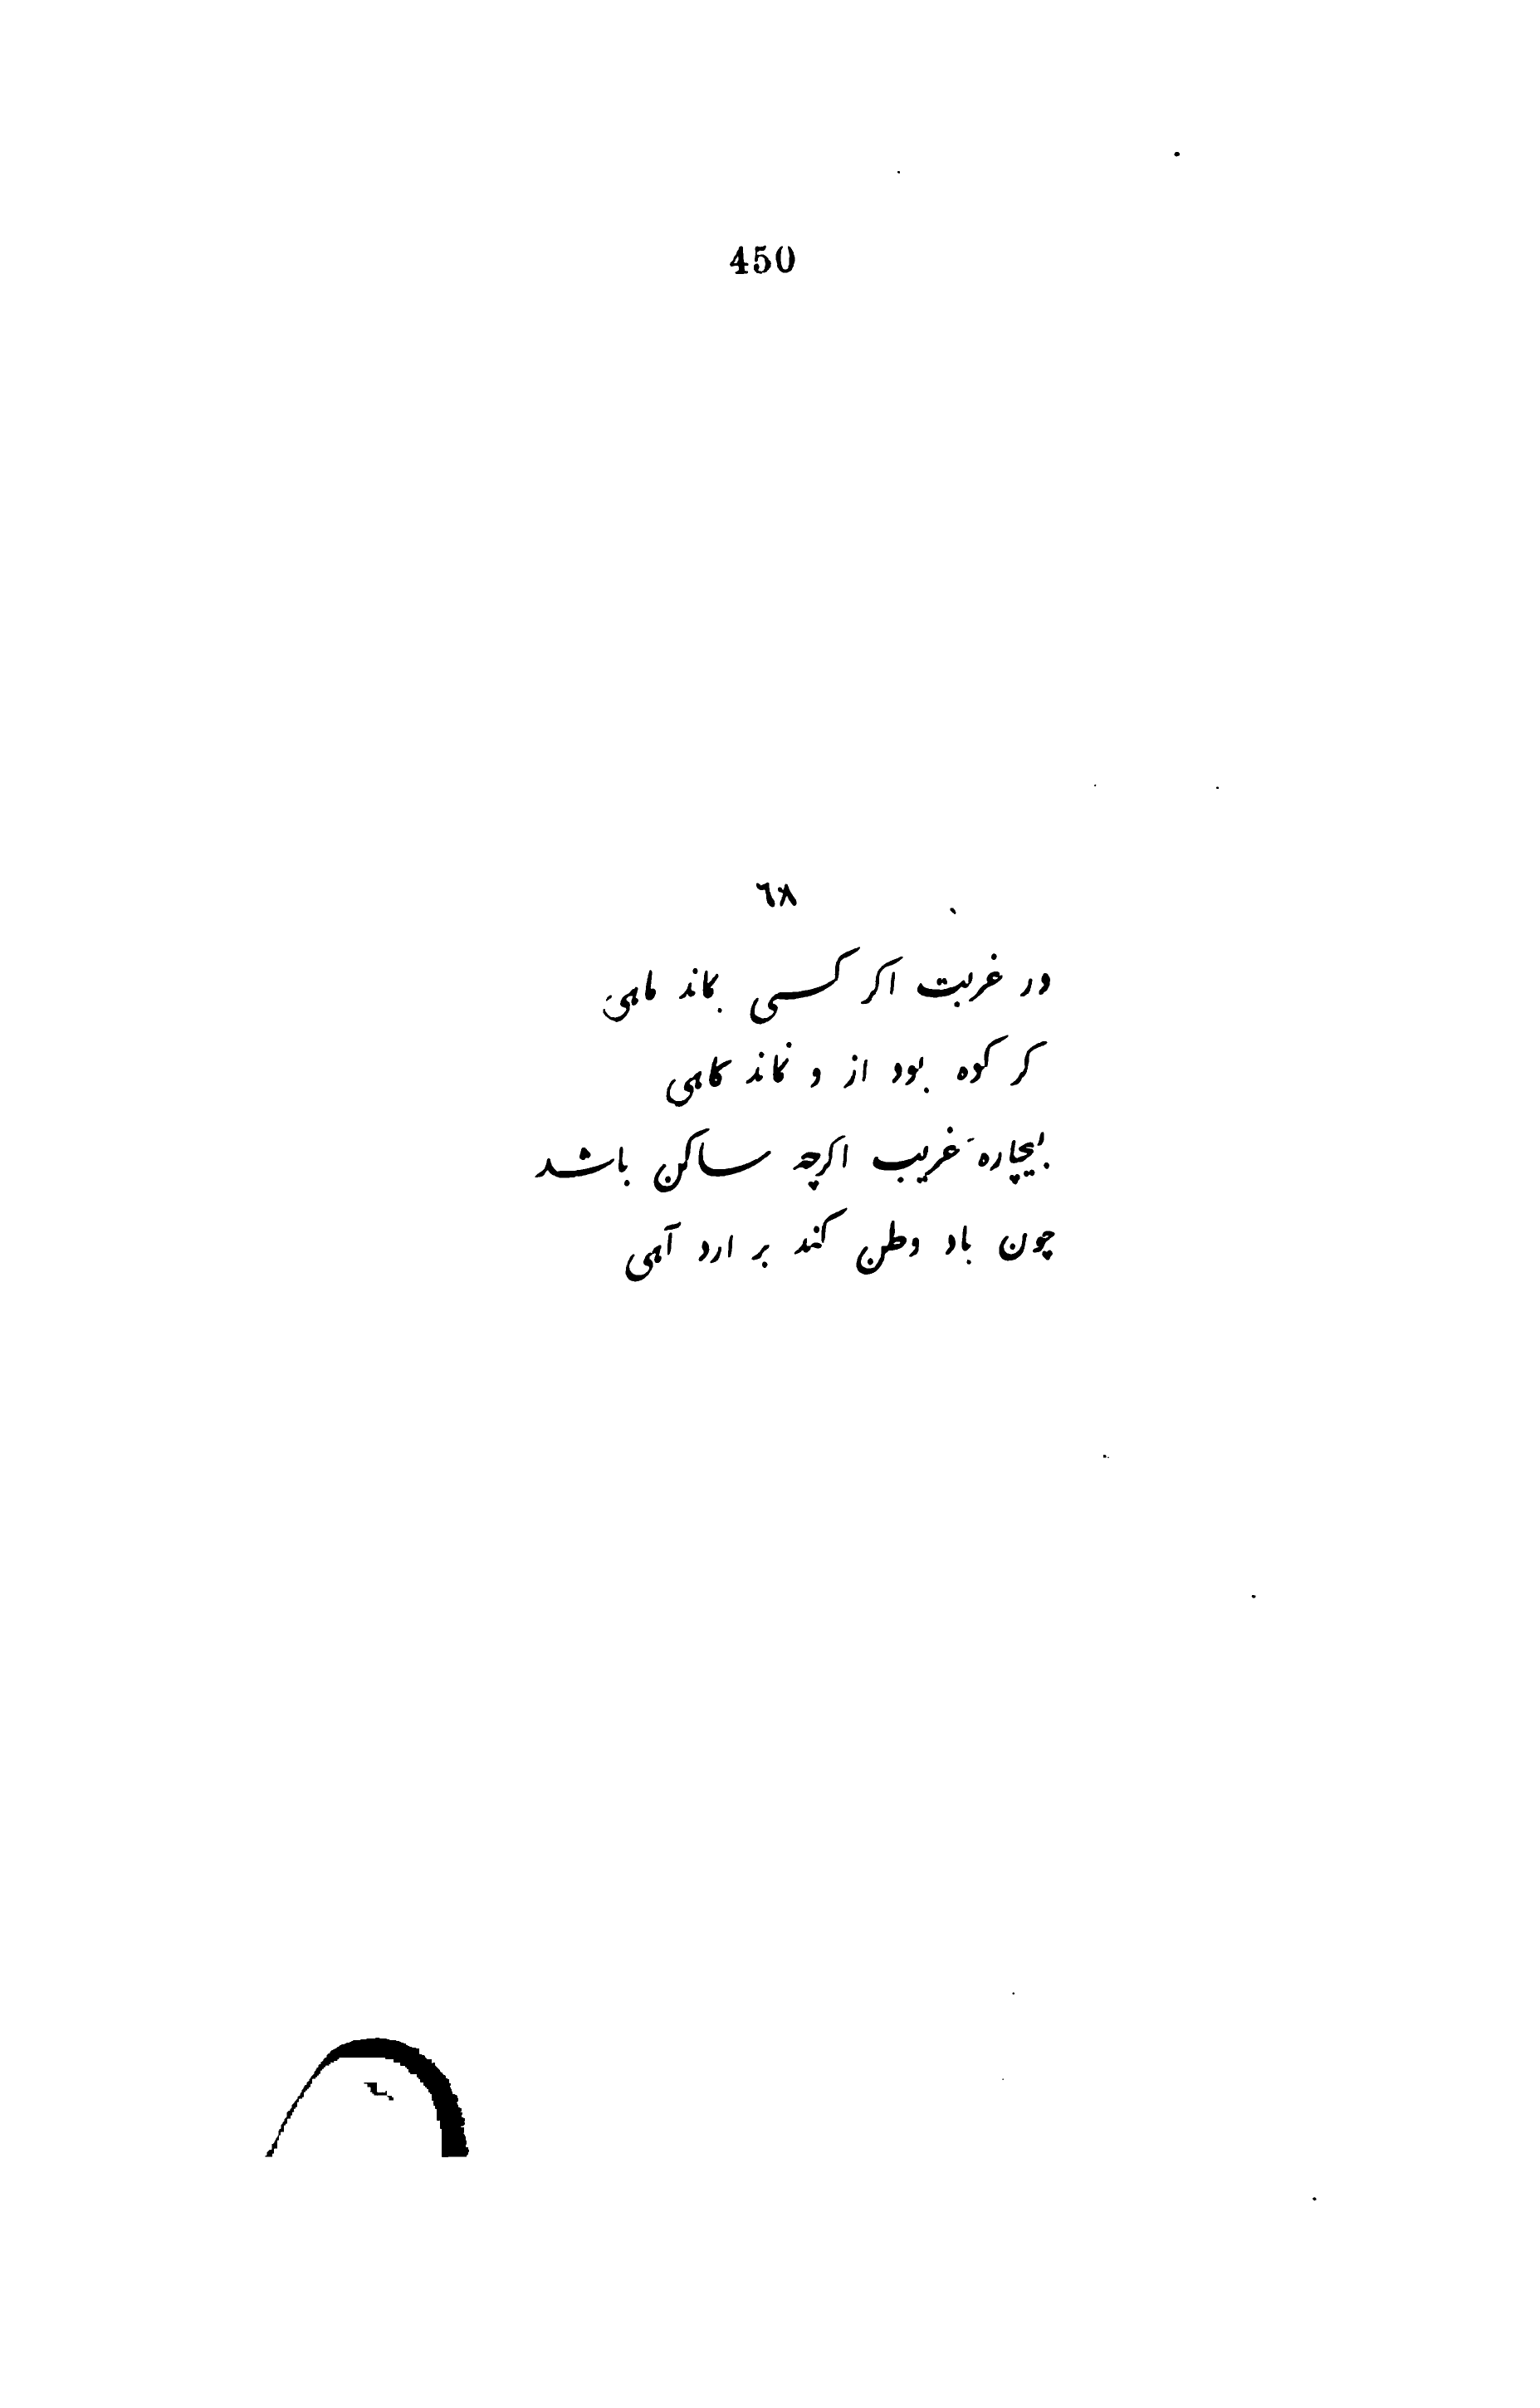 450
٦٨
در غربت اكر كسی بماند ماهی
كر كوه بود از و نماند كاهی
بیچارهٔ غریب اكرچه ساكن باشد
چون یاد وطن كند بر ارد آهی